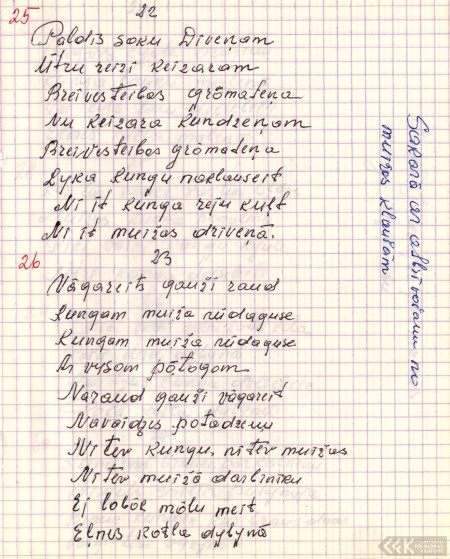 25
22
Paldis soku Diveņam
Ūtru reizi keizaram
Breivesteibas grōmateņa
Nu keizara kundzeņam
Breivesteibas grōmateņa
Lyka kungu naklauseit
Ni it kunga reju kuļt
Ni it muižas driveņā.
26
23
Vāgareits gauži raud
Kungam muiža nūdaguse
Kungam muiža nūdaguse
Ar vysom pōtogom
Naraud gauži vāgareit
Navaidzes potadzeņu
Ni tev kungu, ni tev muižas
Ni tev muižā darbinīku
Ej lobōk mōlu meit
Eļnes kotla dybynā
Sakarā ar atbrīvošanu no
muižas klaušām